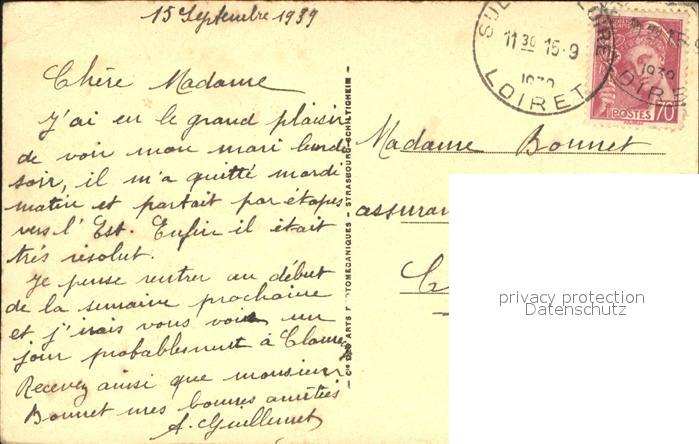 15 Septembre 1939
Chère Madame
J'ai eu le grand plaisir
de voir mon mari lundi
soir, il m'a quitté mardi
matin et partait par étapes
vers l'Est. Enfin il était
très résolut.
Je pense rentrer au début
de la semaine prochaine
et j'irais vous voir un
jour probablement à
Recevez ainsi que monsieur
Bonnet mes bonnes amitiés
A. Guillemet
Cie DES ARTS PHOTOMECANIQUES - STRASBOURG-SCHILTIGHEIM
SUL LOIRE
11 30 15-9
1939
LOIRET
POSTES 70c
Madame Bonnet
assuran
privacy protection
Datenschutz